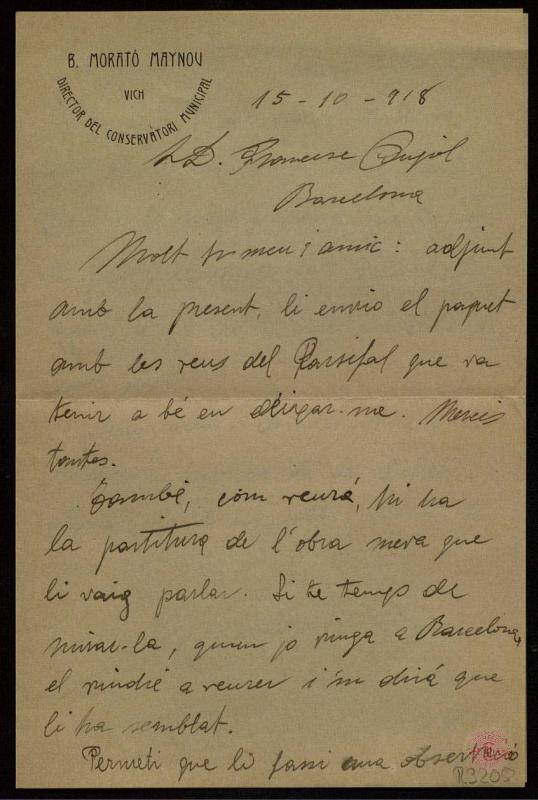 B. MORATÓ MAYNOU
VICH
DIRECTOR DEL CONSERVATORI MUNICIPAL
15-10-918
D. Francesc Pujol
Barcelona
Molt Sr meu i amic: adjunt
amb la present, li envio el paquet
amb les veus del Parsifal que va
tenir a bé en deixar-me. Mercis
tantes.
També, còm veurá, hi ha
la partitura de l'obra meva que
li vaig parlar. Si te temps de
mirar-la, quan jo vinga a Barcelona,
el vindré a veurer i 'm dirá que
li ha semblat.
Permeti que li fassi una observació
R3205